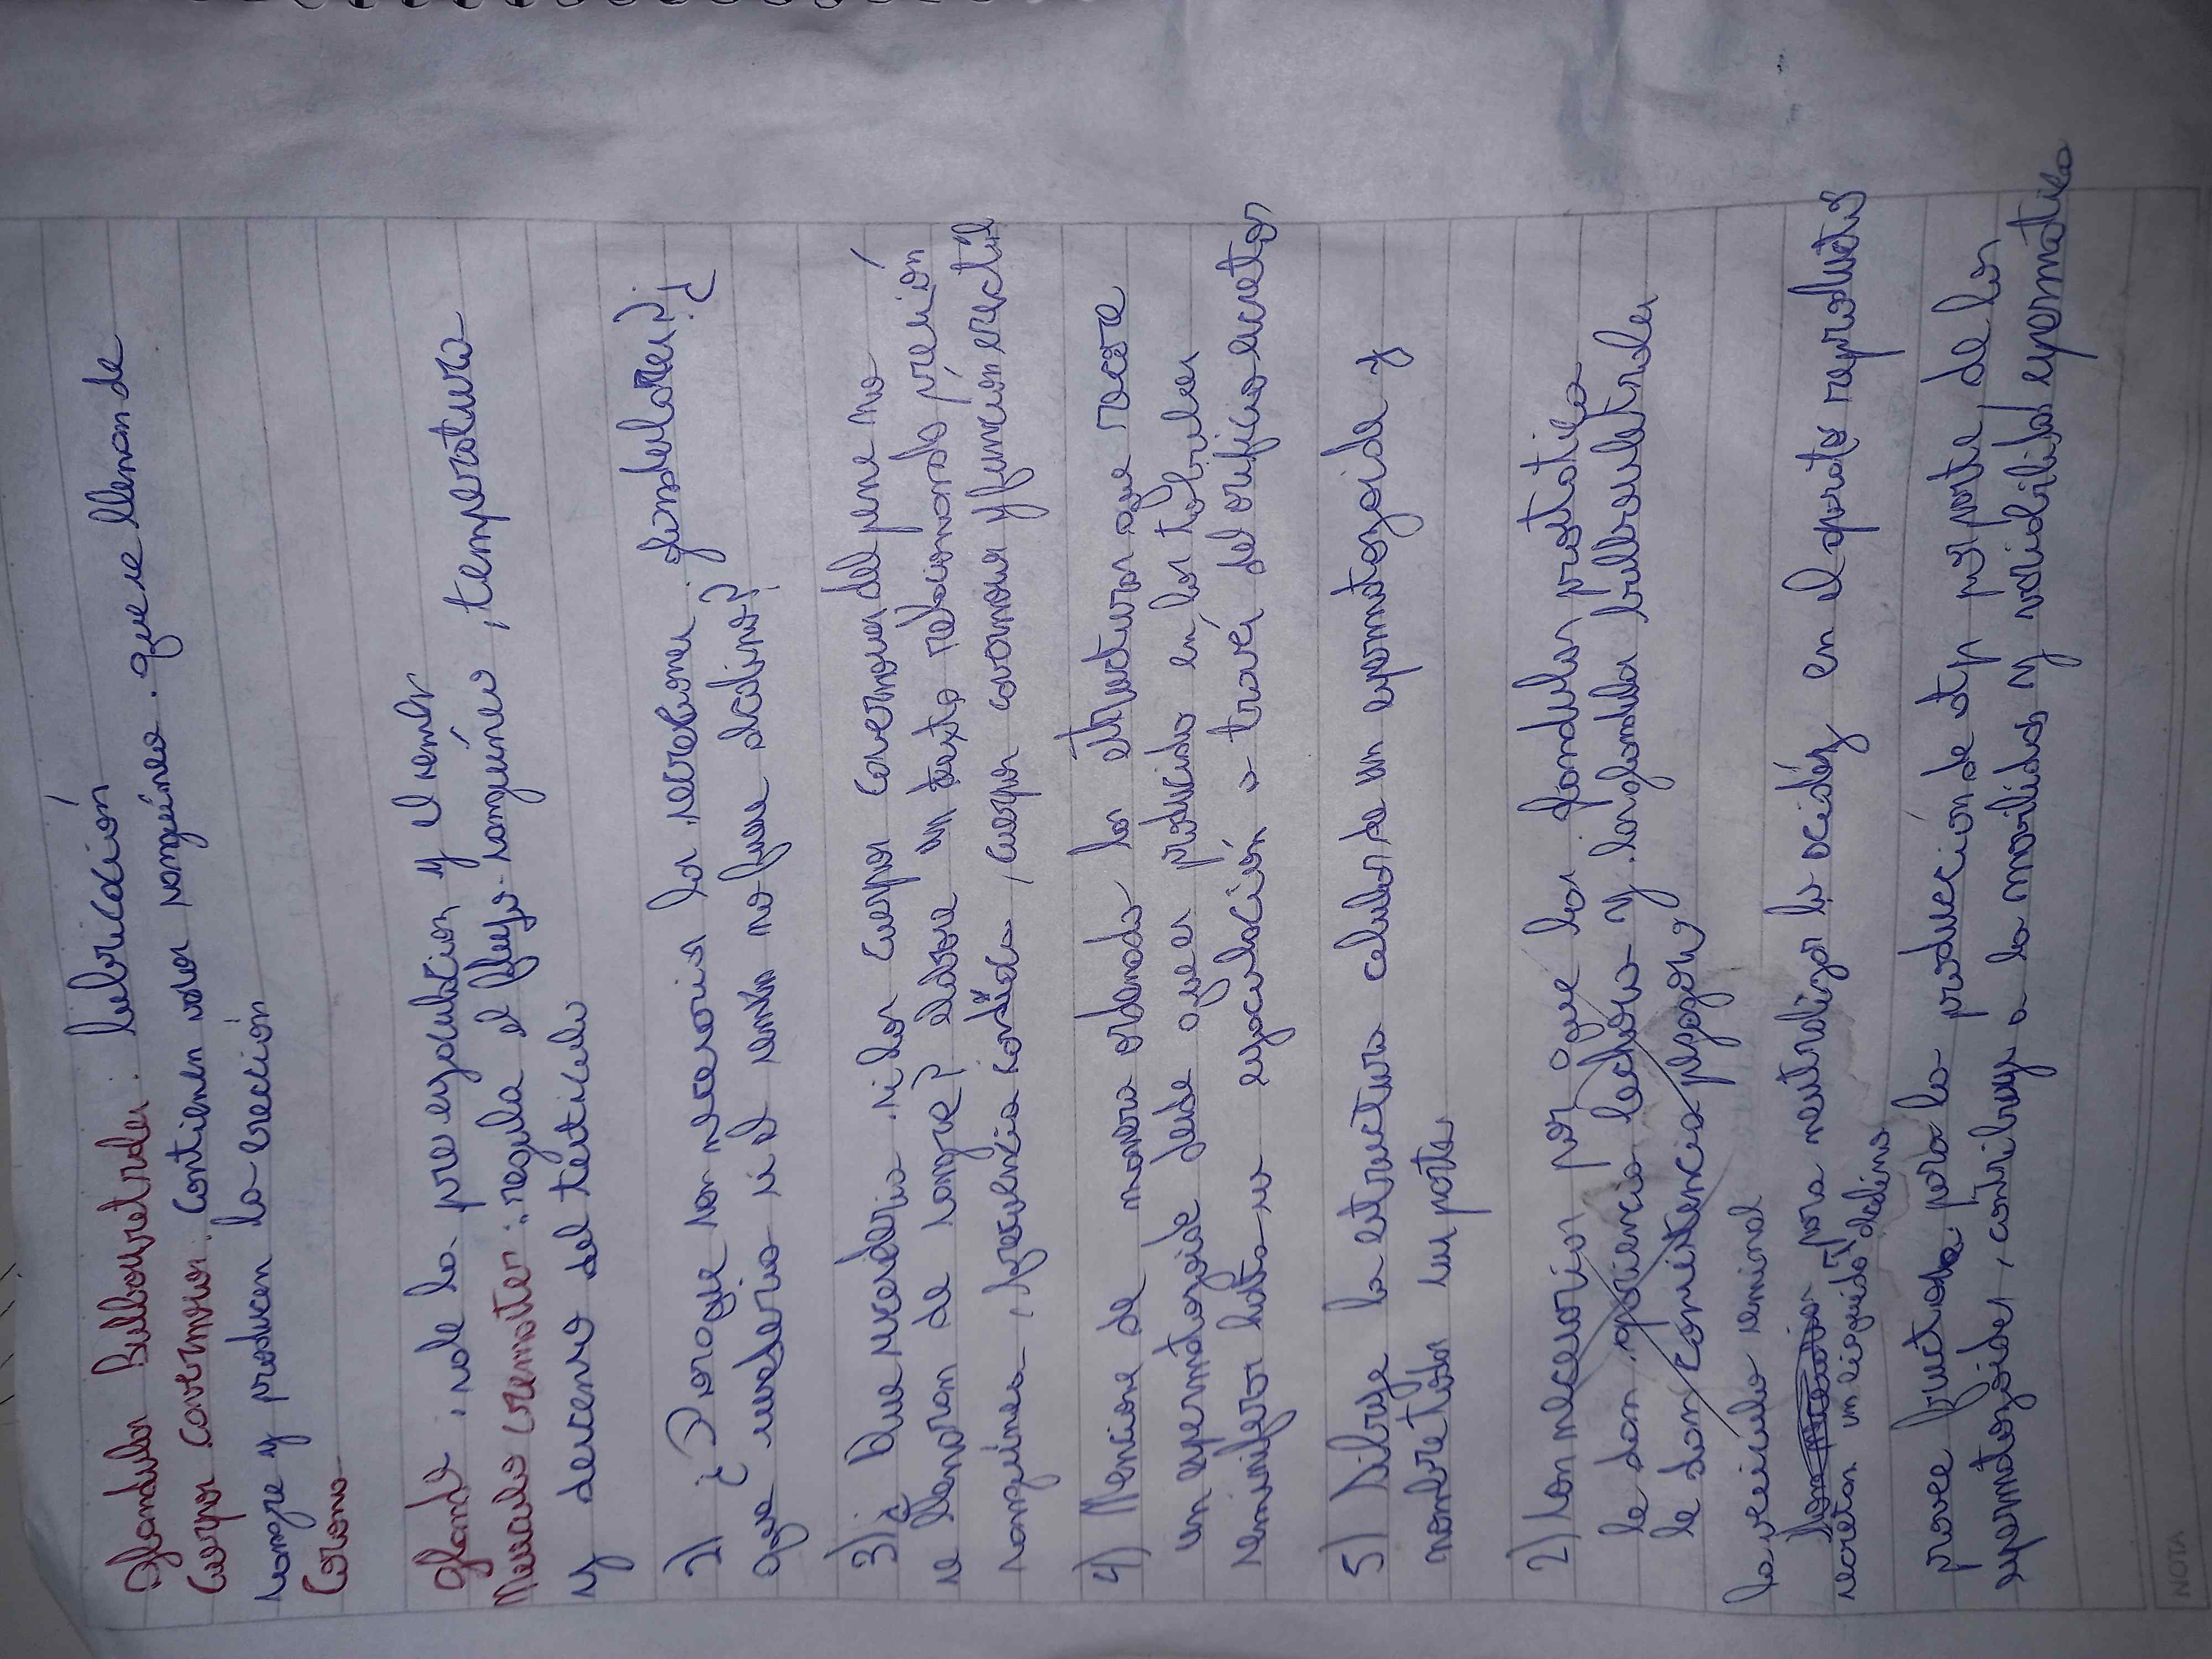 Glandulas Bulbouretrales: lubricación
Cuerpos cavernosos: Contienen vasos sanguíneos que se llenan de
sangre y producen la erección
Corona
glande: sale la pre eyaculation y el semen
Musculo cremaster: regula el flujo sanguíneo, temperatura
y descenso del testiculo
2) ¿Porque son necesarias las secreciones glandulares?¿
que sucederia si el semen no fuera alcalino?
3) ¿Que sucederia si los cuerpos cavernosos del pene no
se llenaran de sangre? elabore un texto relacionando presión
sanguínea, frecuencia cardiáca, cuerpos cavernosos y función eréctil
4) Mencione de manera ordenada las estructuras que recorre
un espermatozoide desde que es producido en los túbulos
seminiferos hasta su eyaculación a través del orificio excretor
5) Dibuje la estructura celular de un espermatozoide y
nombre todas sus partes
2) Son necesarias por que las glandulas prostatica
le dan apariencia lechosa y las glandulas bulbouretrales
le dan consistencia pegajosa
la veiculo seminal
secretan un liquido alcalino para neutralizar la acidéz en el aparato reproductor
provee fructosa para la producción de atp por parte de los
espermatozoides, contribuye a la movilidad y viabilidad espermatica
NOTA